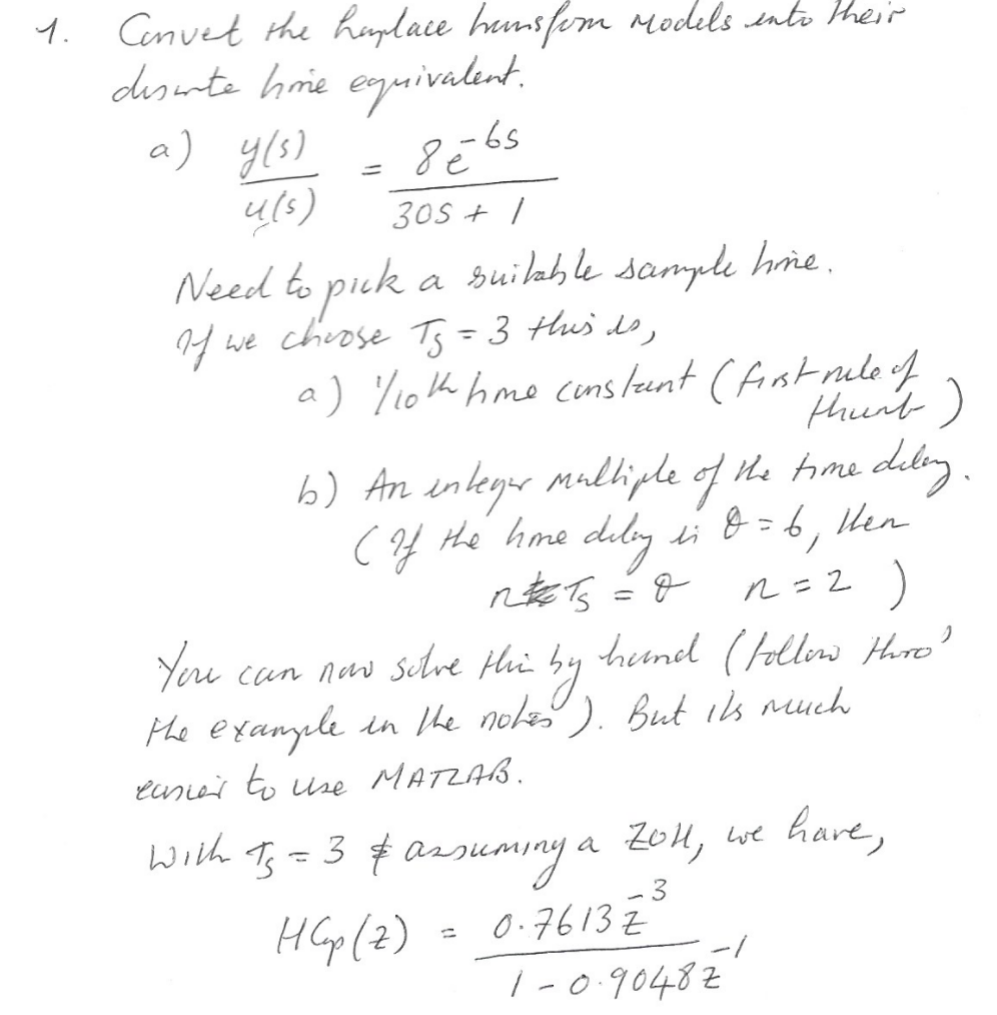 1. Convert the Laplace transform models into their
discrete time equivalent.
a) y(s)/u(s) = 8e^-6s/30s + 1
Need to pick a suitable sample time.
If we choose Ts = 3 this is,
a) 1/10th time constant (first rule of
thumb)
b) An integer multiple of the time delay.
(If the time delay is θ = 6, then
n Ts = θ n = 2 )
You can now solve this by hand (follow thro'
the example in the notes). But its much
easier to use MATLAB.
With Ts = 3 & assuming a ZOH, we have,
HGp(z) = 0.7613z^-3/1 - 0.9048z^-1